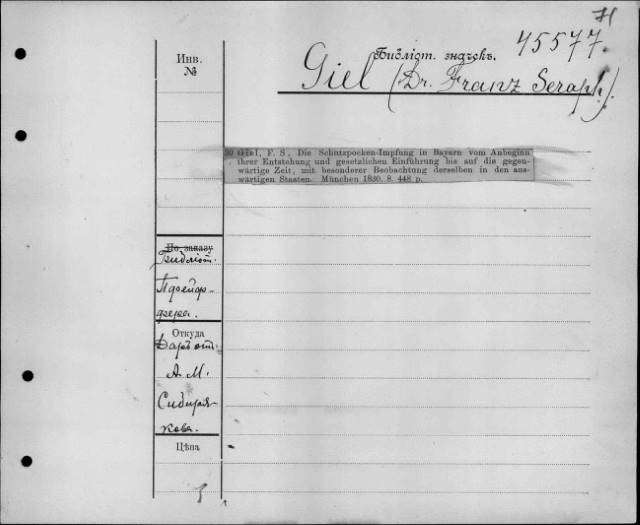 H
Библіот. значекъ. 45577.
Инв.
№
Giel (Dr. Franz Seraph.).
Giel, F. S., Die Schutzpocken-Impfung in Bayern vom Anbeginn
ihrer Entstehung und gesetzlichen Einführung bis auf die gegen-
wärtige Zeit, mit besonderer Beobachtung derselben in den aus-
wärtigen Staaten. München 1830. 8. 448 p.
По заказу
Библіот.
Пфейф-
фера.
Откуда
Даръ от.
А. М.
Сибиря-
кова.
Цѣна